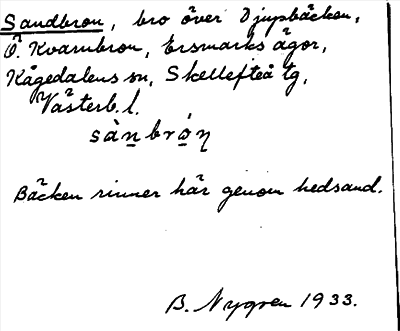 Sandbron, bro över Djupbäcken,
Ö. Kvarnbron, Ersmarks ägor,
Kågedalens sn, Skellefteå tg,
Västerb. l.
sànbrón
Bäcken rinner här genom hedsand.
B. Nygren 1933.